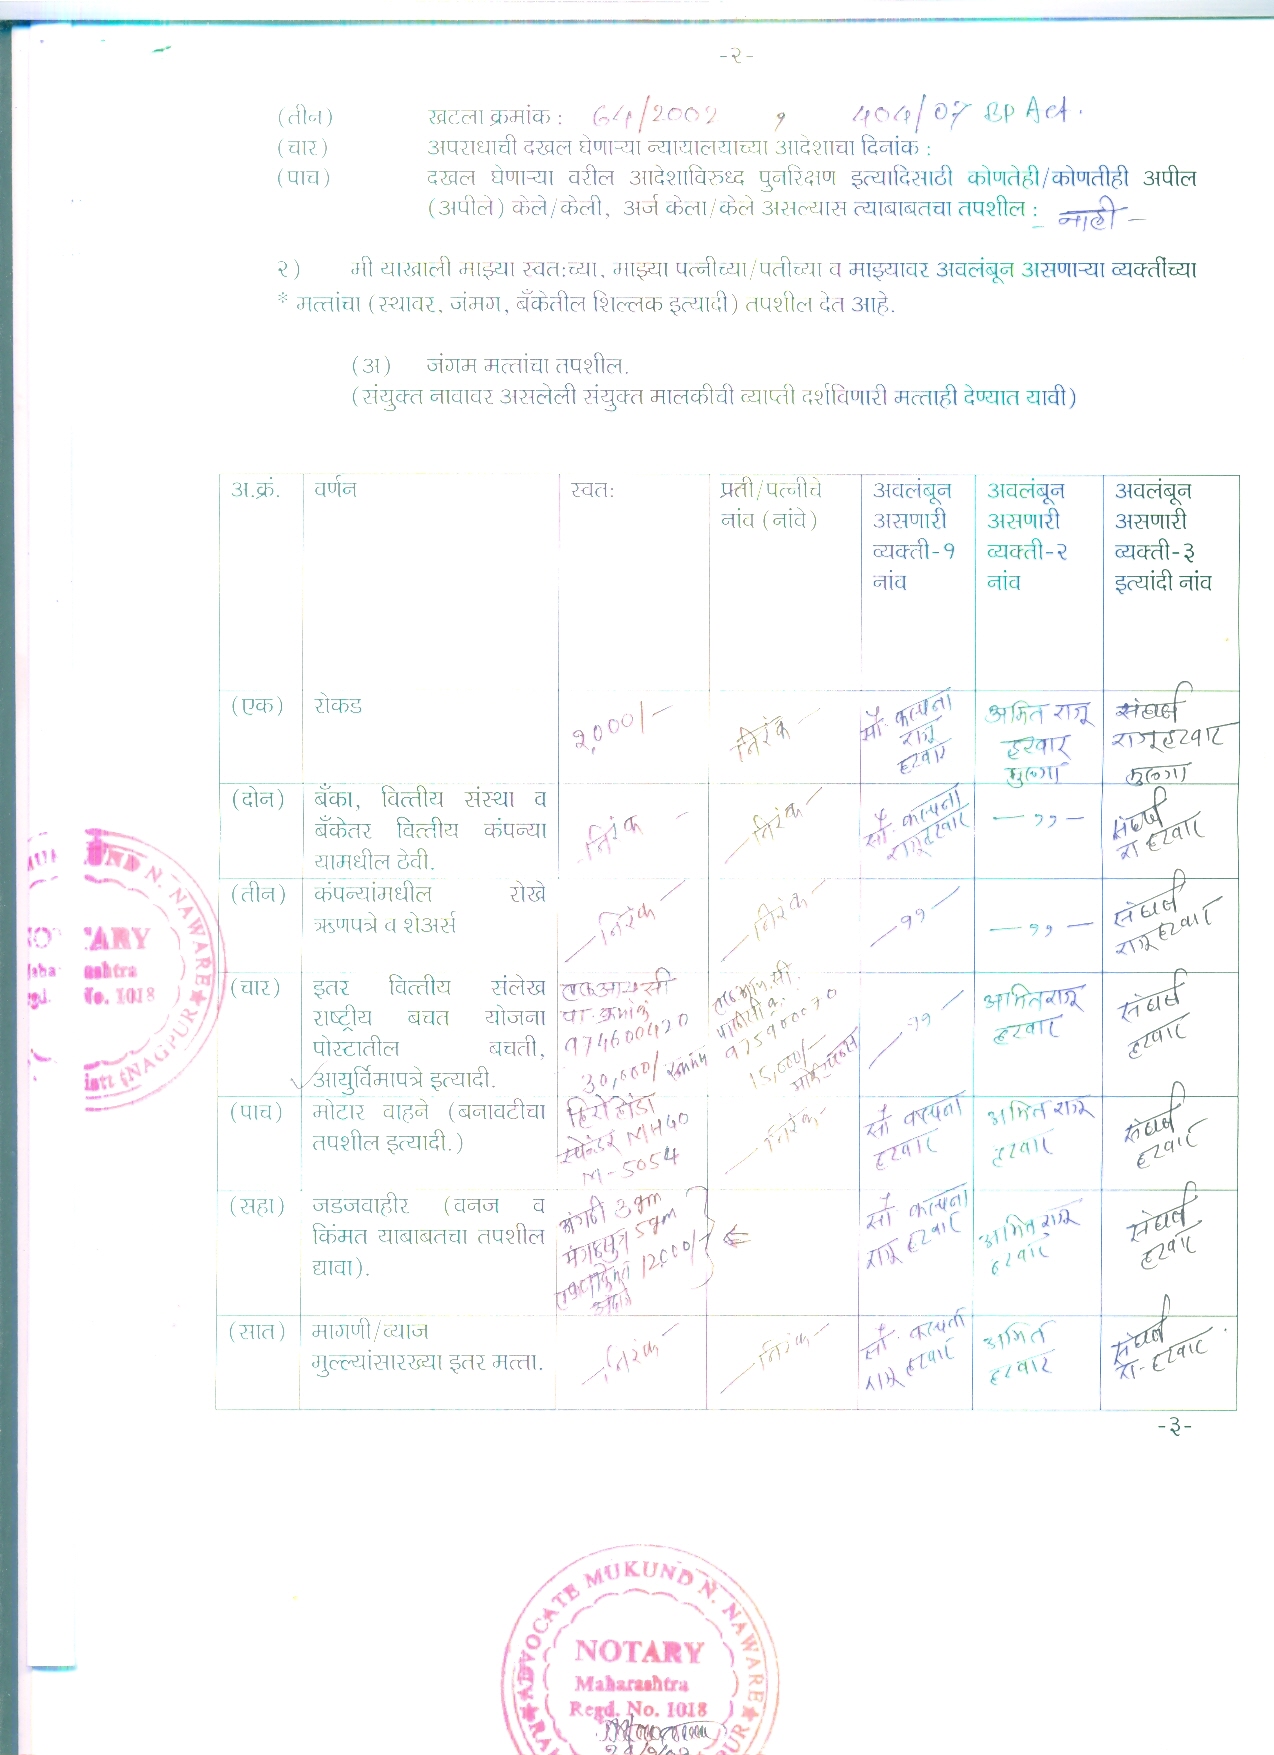 -२-
(तीन) खटला क्रमांक : 64/2002 , 404/07 BP Act.
(चार) अपराधाची दखल घेणाऱ्या न्यायालयाच्या आदेशाचा दिनांक :
(पाच) दखल घेणाऱ्या वरील आदेशाविरुध्द पुनरिक्षण इत्यादिसाठी कोणतेही/कोणतीही अपील
(अपीले) केले/केली, अर्ज केला/केले असल्यास त्याबाबतचा तपशील : - नाही -
२) मी याखाली माझ्या स्वत:च्या, माझ्या पत्नीच्या/पतीच्या व माझ्यावर अवलंबून असणाऱ्या व्यक्तींच्या
* मत्तांचा (स्थावर, जंमग, बँकेतील शिल्लक इत्यादी) तपशील देत आहे.
(अ) जंगम मत्तांचा तपशील.
(संयुक्त नावावर असलेली संयुक्त मालकीची व्याप्ती दर्शविणारी मत्ताही देण्यात यावी)
अ.क्रं. वर्णन स्वत: प्रती/पत्नीचे अवलंबून अवलंबून अवलंबून
नांव (नांवे) असणारी असणारी असणारी
व्यक्ती-१ व्यक्ती-२ व्यक्ती-३
नांव नांव इत्यांदी नांव
(एक) रोकड 2,000/- निरंक सौ. कल्पना अमित राजू संघर्ष
राजू हरवार हरवार राजू हरवार
मुलगा मुलगा
(दोन) बँका, वित्तीय संस्था व निरंक - निरंक - सौ. कल्पना - ,, - संघर्ष
बँकेतर वित्तीय कंपन्या राजू हरवार रा हरवार
यामधील ठेवी.
(तीन) कंपन्यांमधील रोखे - निरंक - - निरंक - - ,, - - ,, - संघर्ष
ऋणपत्रे व शेअर्स राजू हरवार
(चार) इतर वित्तीय संलेख एल आय सी - ,, - अमित राजू संघर्ष
राष्ट्रीय बचत योजना पा. क्रमांक हरवार हरवार
पोस्टातील बचती, 974600420 975900070
आयुर्विमापत्रे इत्यादी. 30,000/ 15,000/-
(पाच) मोटार वाहने (बनावटीचा हिरो होंडा - निरंक - सौ कल्पना अमित राजू संघर्ष
तपशील इत्यादी.) स्प्लेन्डर MH40 हरवार हरवार हरवार
M-5054
(सहा) जडजवाहीर (वनज व अंगठी 3 gm सौ कल्पना अमित राजू संघर्ष
किंमत याबाबतचा तपशील मंगळसूत्र 5 gm राजू हरवार हरवार हरवार
द्यावा). 12000/
(सात) मागणी/व्याज - निरंक - - निरंक - सौ. कल्पना अमित संघर्ष
मुल्ल्यांसारख्या इतर मत्ता. राजू हरवार हरवार रा. हरवार
-३-
ADVOCATE MUKUND N. NAWARE
NOTARY
Maharashtra
Regd. No. 1018